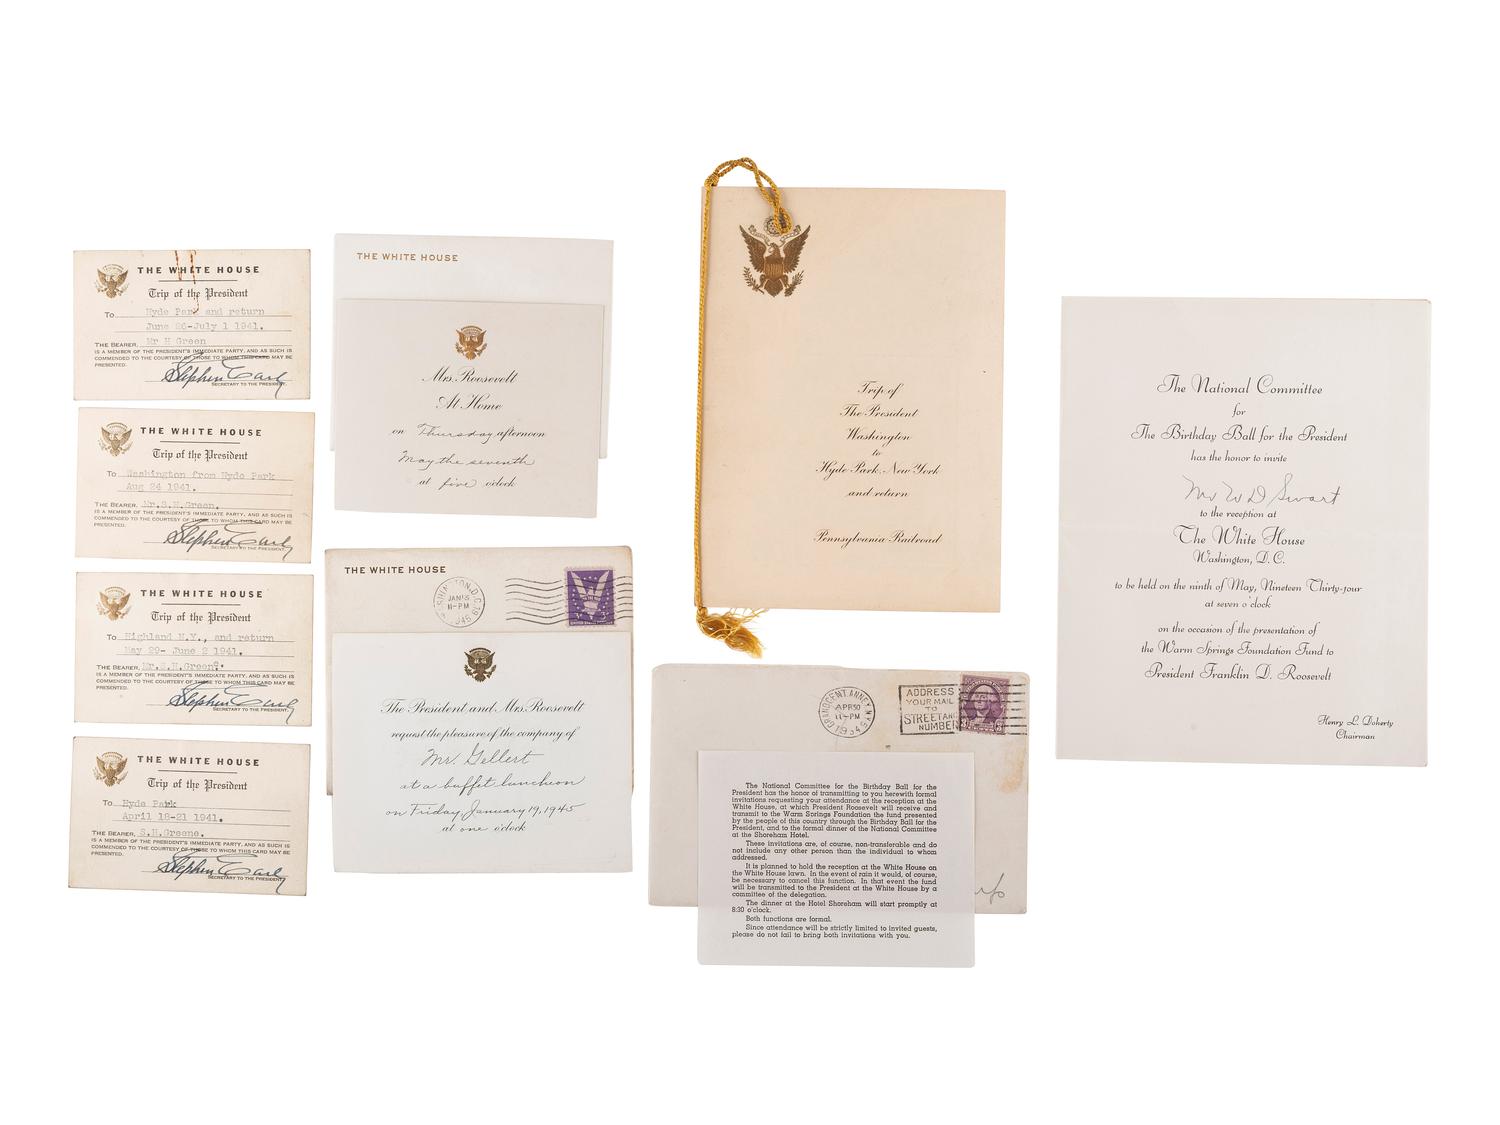 THE WHITE HOUSE
Trip of the President
To Hyde Park and return
June 26-July 1 1941.
THE BEARER, Mr H Green
IS A MEMBER OF THE PRESIDENT'S IMMEDIATE PARTY, AND AS SUCH IS
COMMENDED TO THE COURTESY OF THOSE TO WHOM THIS CARD MAY BE
PRESENTED.
Stephen Early
SECRETARY TO THE PRESIDENT.
THE WHITE HOUSE
Trip of the President
To Washington from Hyde Park
Aug 24 1941.
THE BEARER, Mr.S.H.Green.
IS A MEMBER OF THE PRESIDENT'S IMMEDIATE PARTY, AND AS SUCH IS
COMMENDED TO THE COURTESY OF THOSE TO WHOM THIS CARD MAY BE
PRESENTED.
Stephen Early
SECRETARY TO THE PRESIDENT.
THE WHITE HOUSE
Trip of the President
To Highland N.Y., and return
May 29- June 2 1941.
THE BEARER, Mr.S.H.Green
IS A MEMBER OF THE PRESIDENT'S IMMEDIATE PARTY, AND AS SUCH IS
COMMENDED TO THE COURTESY OF THOSE TO WHOM THIS CARD MAY BE
PRESENTED.
Stephen Early
SECRETARY TO THE PRESIDENT.
THE WHITE HOUSE
Trip of the President
To Hyde Park
April 18-21 1941.
THE BEARER, S.H.Greene.
IS A MEMBER OF THE PRESIDENT'S IMMEDIATE PARTY, AND AS SUCH IS
COMMENDED TO THE COURTESY OF THOSE TO WHOM THIS CARD MAY BE
PRESENTED.
Stephen Early
SECRETARY TO THE PRESIDENT.
THE WHITE HOUSE
Mrs. Roosevelt
At Home
on Thursday afternoon
May the seventh
at five o'clock
THE WHITE HOUSE
11-PM
1945
The President and Mrs. Roosevelt
request the pleasure of the company of
Mr. Gellert
at a buffet luncheon
on Friday January 19, 1945
at one o'clock
Trip of
The President
Washington
to
Hyde Park, New York
and return
Pennsylvania Railroad
APR 30
11-PM
1934
ADDRESS
YOUR MAIL
TO
STREET AND
NUMBER
The National Committee for the Birthday Ball for the
President has the honor of transmitting to you herewith formal
invitations requesting your attendance at the reception at the
White House, at which President Roosevelt will receive and
transmit to the Warm Springs Foundation the fund presented
by the people of this country through the Birthday Ball for the
President, and to the formal dinner of the National Committee
at the Shoreham Hotel.
These invitations are, of course, non-transferable and do
not include any other person than the individual to whom
addressed.
It is planned to hold the reception at the White House on
the White House lawn. In the event of rain it would, of course,
be necessary to cancel this function. In that event the fund
will be transmitted to the President at the White House by a
committee of the delegation.
The dinner at the Hotel Shoreham will start promptly at
8:30 o'clock.
Both functions are formal.
Since attendance will be strictly limited to invited guests,
please do not fail to bring both invitations with you.
The National Committee
for
The Birthday Ball for the President
has the honor to invite
Mr W D Swart
to the reception at
The White House
Washington, D. C.
to be held on the ninth of May, Nineteen Thirty-four
at seven o'clock
on the occasion of the presentation of
the Warm Springs Foundation Fund to
President Franklin D. Roosevelt
Henry L. Doherty
Chairman